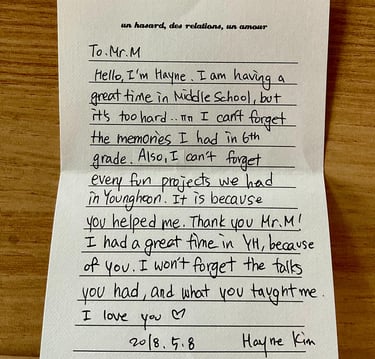 un hasard, des relations, un amour
To. Mr. M
Hello, I'm Hayne. I am having a
great time in Middle School, but
it's too hard..ㅠㅠ I can't forget
the memories I had in 6th
grade. Also, I can't forget
every fun projects we had
in Younghoon. It is because
you helped me. Thank you Mr.M!
I had a great time in YH, because
of you. I won't forget the talks
you had, and what you taught me.
I love you ♡
2018. 5. 8 Hayne Kim